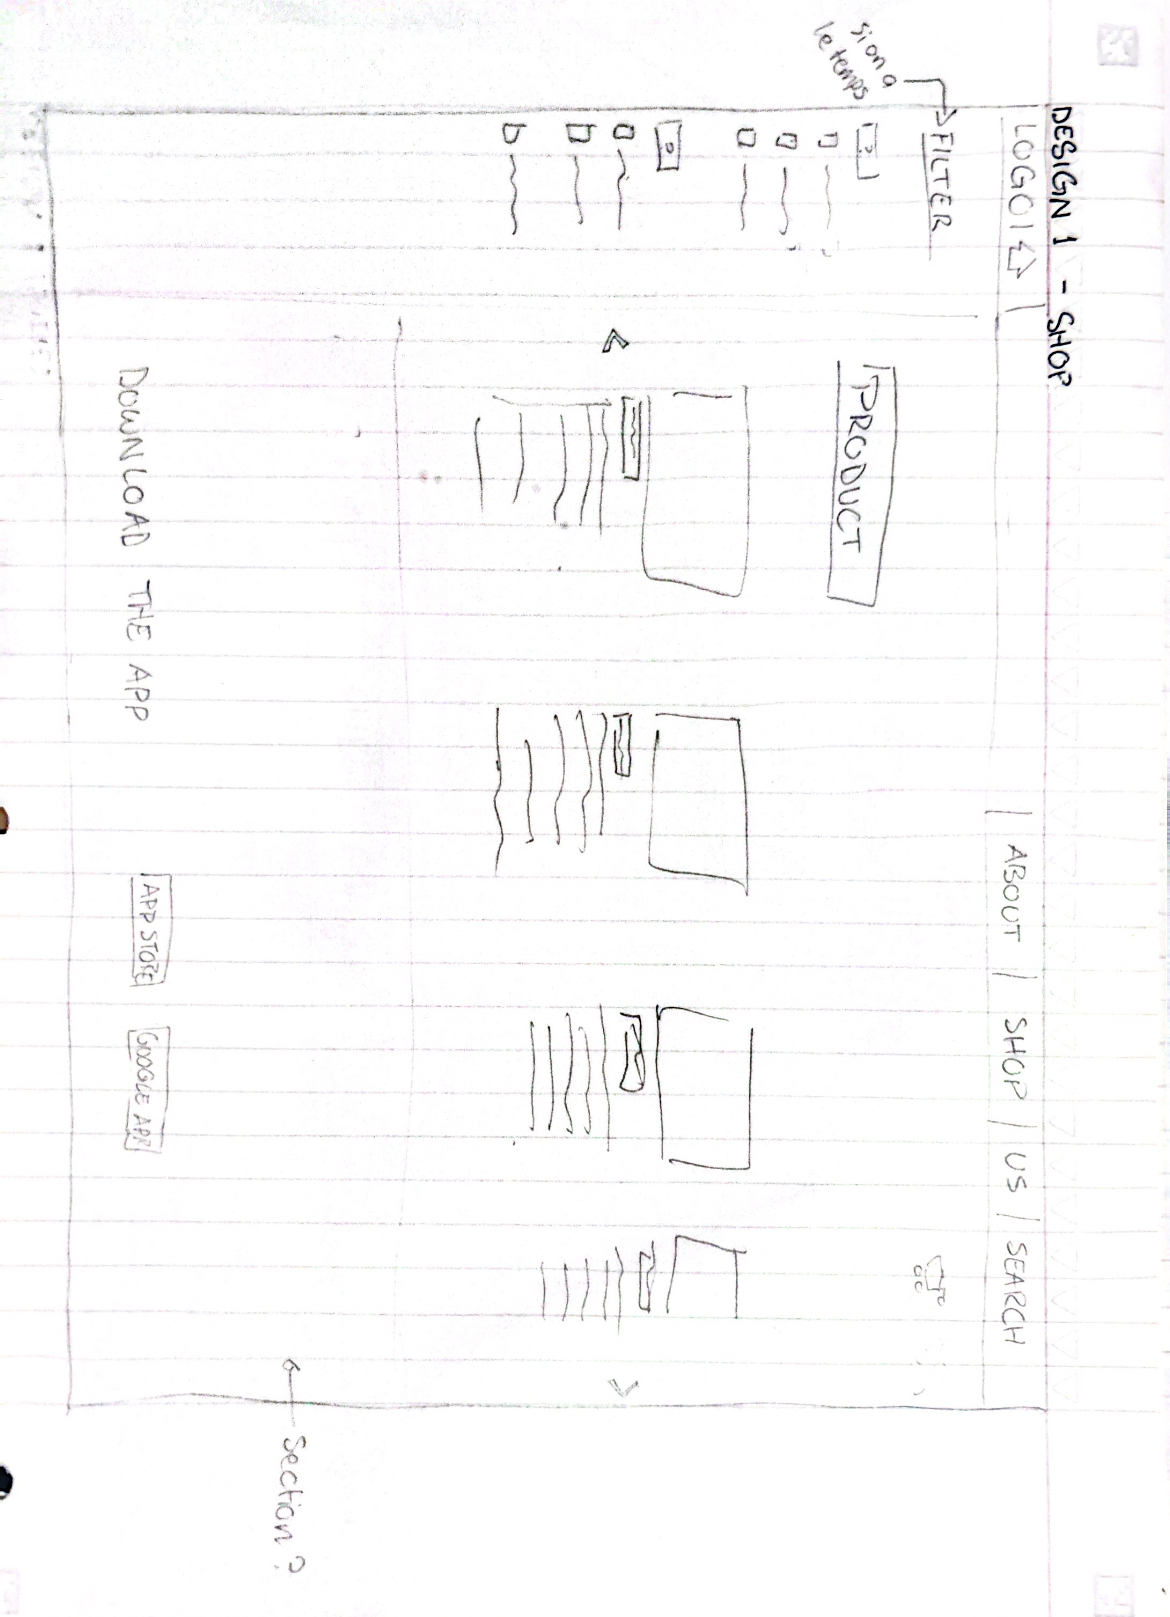 DESIGN 1 - SHOP
LOGO | ABOUT | SHOP | US | SEARCH
si on a
le temps
FILTER
PRODUCT
Section?
DOWNLOAD THE APP
APP STORE
GOOGLE APP